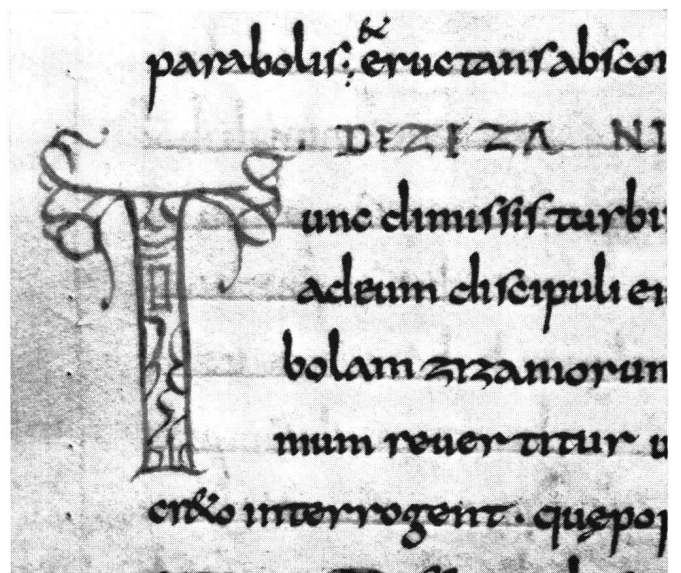 parabolis; & eructans absco
DE ZEZA NI
Tunc dimissis turbi
ad eum discipuli ei
bolam zizaniorum
mum reuertitur u
cr&o interrogent · quę po